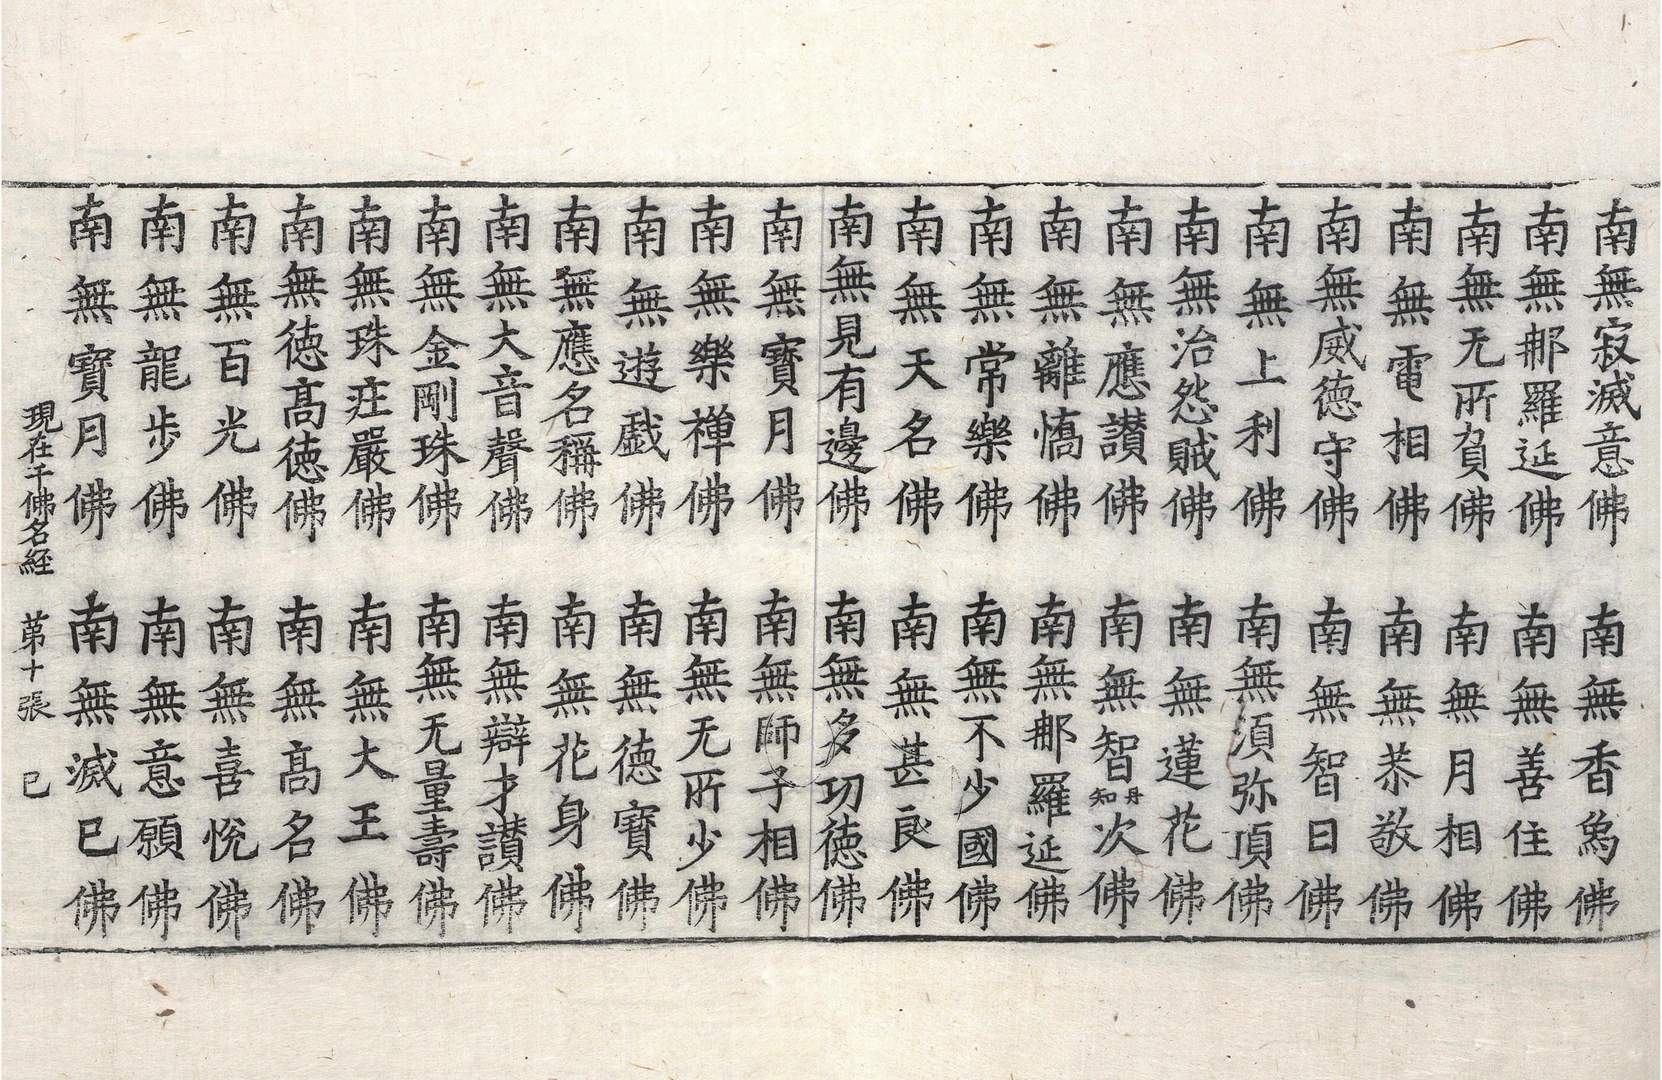 南無寂滅意佛　南無香爲佛
南無那羅延佛　南無善住佛
南無无所負佛　南無月相佛
南無電相佛　南無恭敬佛
南無威徳守佛　南無智日佛
南無上利佛　南無須弥頂佛
南無治怨賊佛　南無蓮花佛
南無應讃佛　南無智丹知次佛
南無離憍佛　南無那羅延佛
南無常樂佛　南無不少國佛
南無天名佛　南無甚良佛
南無見有邊佛　南無多功徳佛
南無寶月佛　南無師子相佛
南無樂禪佛　南無无所少佛
南無遊戯佛　南無徳寶佛
南無應名稱佛　南無花身佛
南無大音聲佛　南無辯才讃佛
南無金剛珠佛　南無无量壽佛
南無珠莊嚴佛　南無大王佛
南無徳髙徳佛　南無髙名佛
南無百光佛　南無喜悅佛
南無龍步佛　南無意願佛
南無寶月佛　南無滅已佛
現在千佛名経　苐十張　已